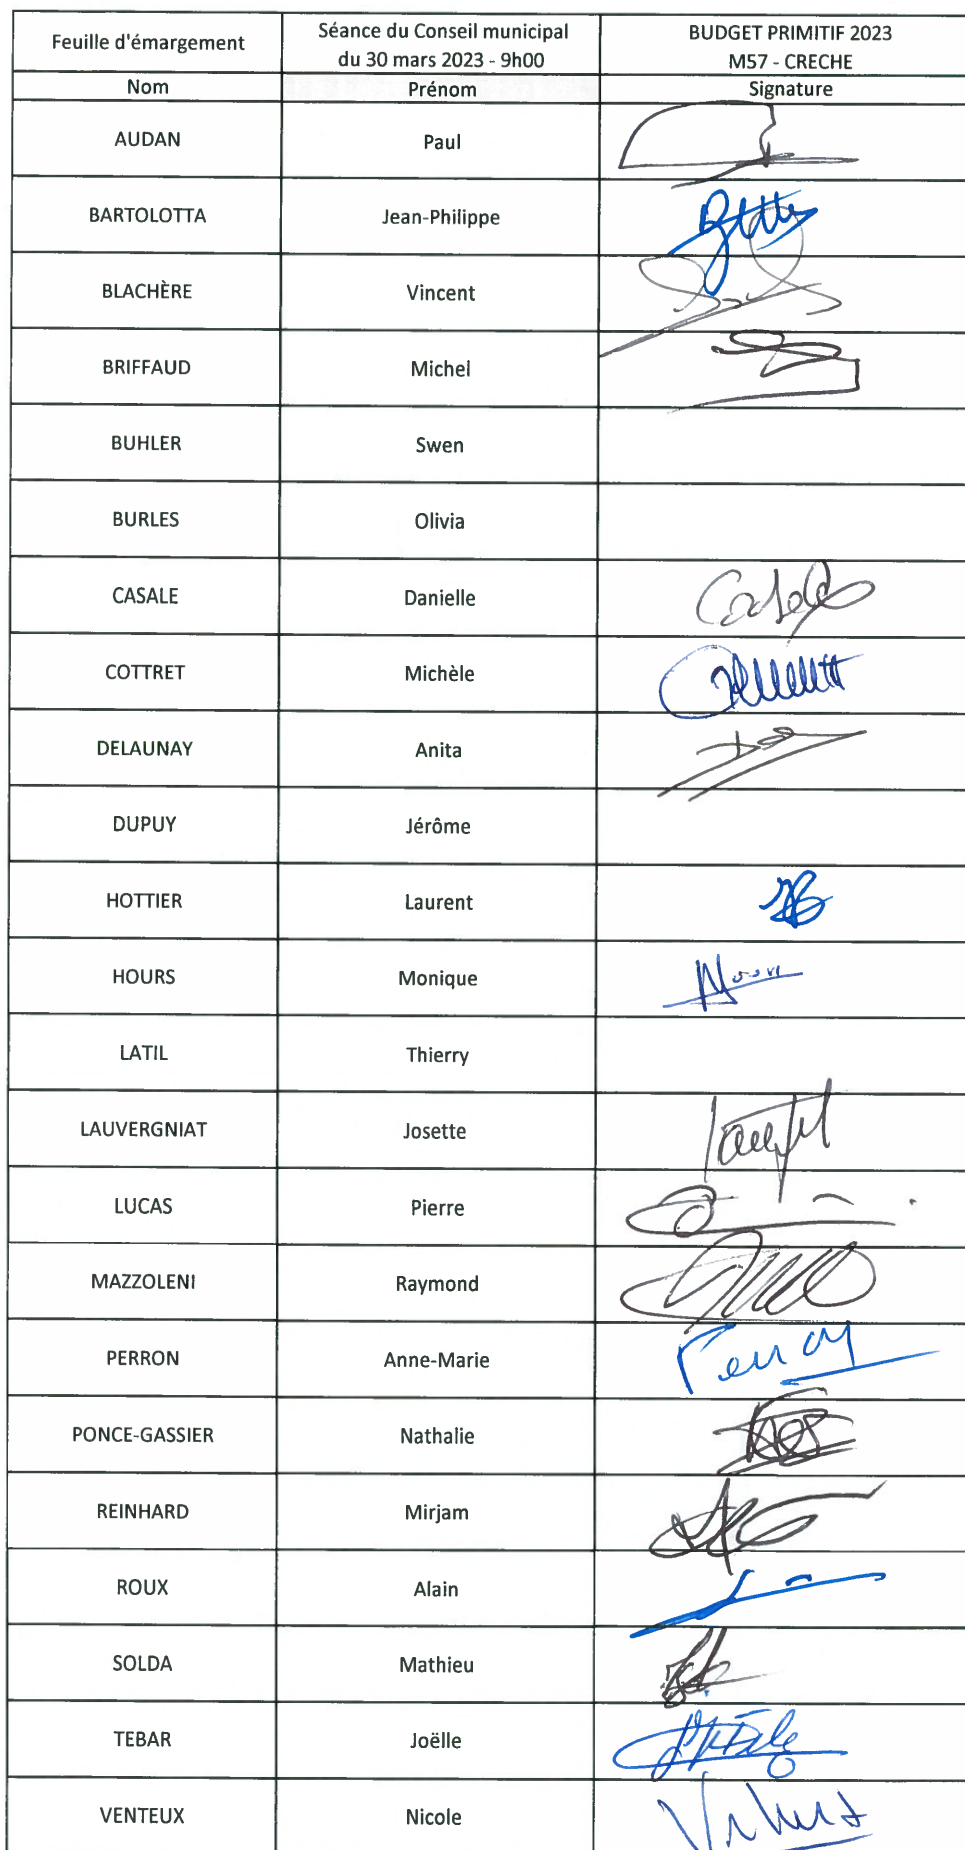 Feuille d'émargement
Séance du Conseil municipal
du 30 mars 2023 - 9h00
BUDGET PRIMITIF 2023
M57 - CRECHE
Nom Prénom Signature
AUDAN Paul
BARTOLOTTA Jean-Philippe
BLACHÈRE Vincent
BRIFFAUD Michel
BUHLER Swen
BURLES Olivia
CASALE Danielle
COTTRET Michèle
DELAUNAY Anita
DUPUY Jérôme
HOTTIER Laurent
HOURS Monique
LATIL Thierry
LAUVERGNIAT Josette
LUCAS Pierre
MAZZOLENI Raymond
PERRON Anne-Marie
PONCE-GASSIER Nathalie
REINHARD Mirjam
ROUX Alain
SOLDA Mathieu
TEBAR Joëlle
VENTEUX Nicole